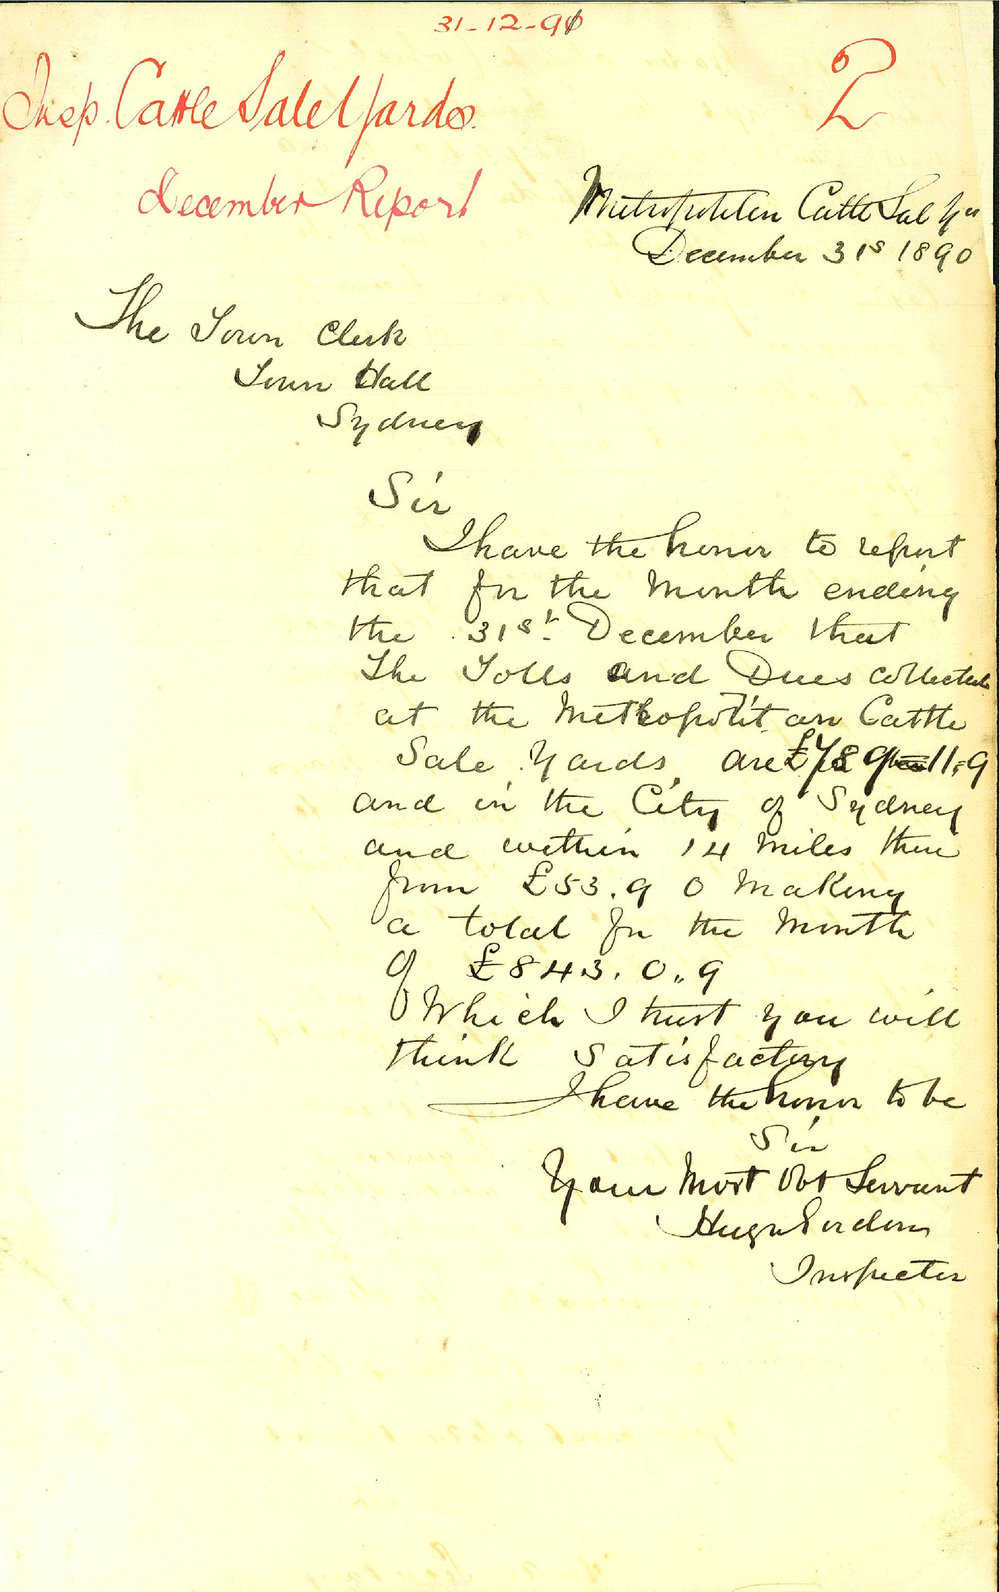 31-12-90
Insp. Cattle Sale Yards.
2
December Report
Metropolitan Cattle Sal Yds
December 31s 1890
The Town Clerk
Town Hall
Sydney
Sir
I have the honor to report
that for the Month ending
the 31st December that
The Tolls and Dues collected
at the Metropolitan Cattle
Sale Yards, are £789 11.9
and in the City of Sydney
and within 14 Miles there
from £53.9 0 Making
a total for the Month
of £843.0.9
Which I trust you will
think satisfactory
I have the honor to be
Sir
Your Most Obt Servant
Hugh Gordon
Inspector